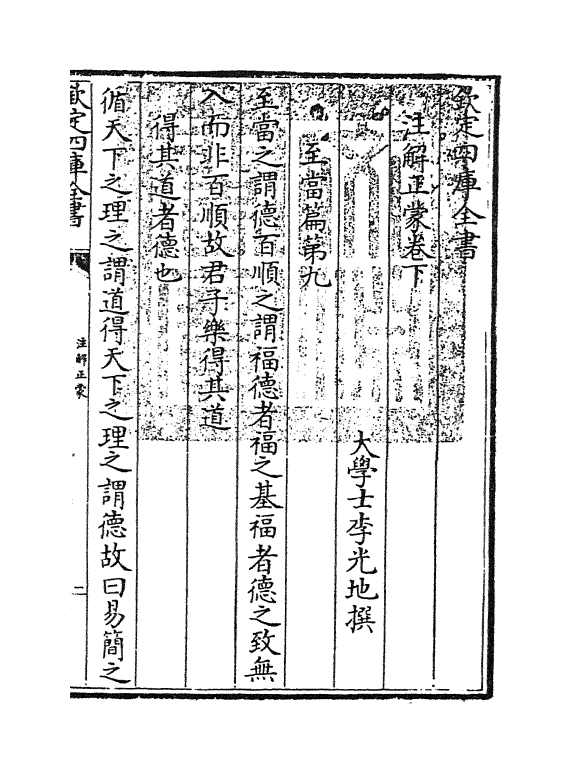 欽定四庫全書
注解正蒙卷下
大學士李光地撰
至當篇第九
至當之謂德百順之謂福德者福之基福者德之致無
入而非百順故君子樂得其道
得其道者德也
循天下之理之謂道得天下之理之謂德故曰易簡之
欽定四庫全書
注解正蒙
二